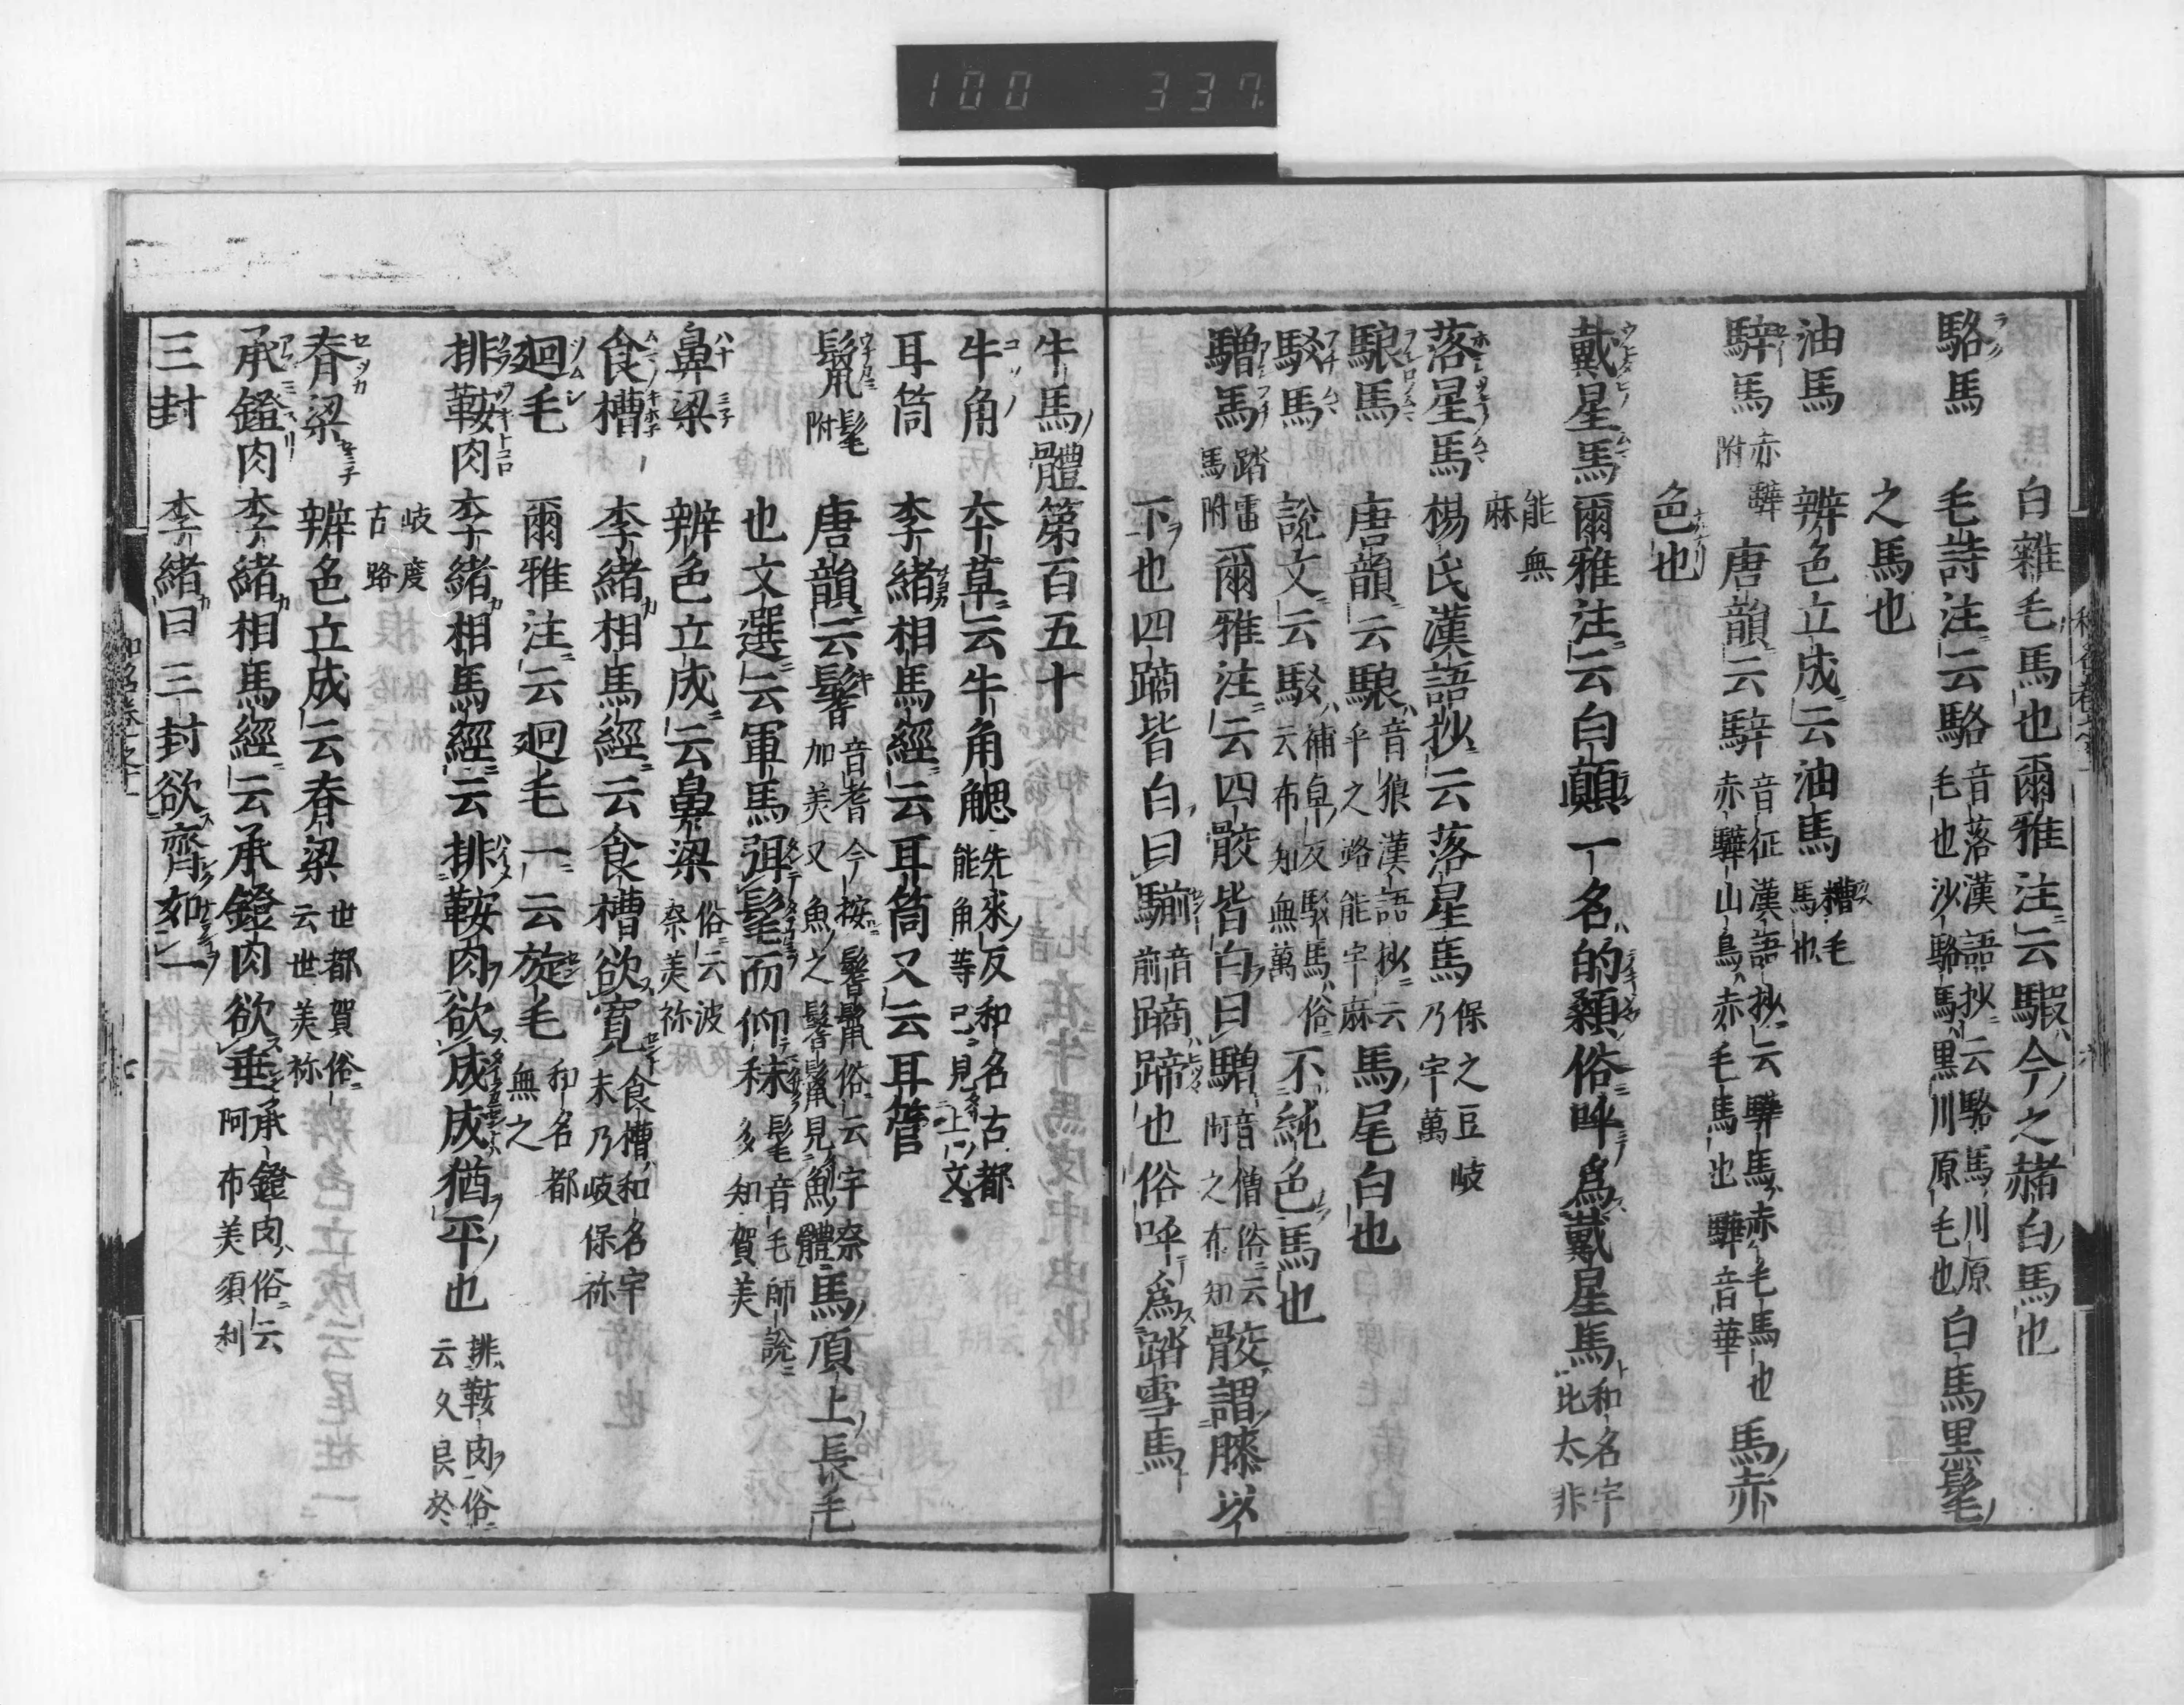 100 337
白雜毛馬也爾雅注云騢今之赭白馬也
駱馬 毛詩注云駱音落漢語抄云駱馬川原毛也沙駱馬黒川原毛也白馬黒髦
之馬也
油馬 辨色立成云油馬糟毛馬也
騂馬赤驊附 唐韻云騂音征漢語抄云驊馬赤毛馬也赤驊山鳥赤毛馬也驊音華馬赤
色也
戴星馬 爾雅注云白顛一名的顙俗呼爲戴星馬和名宇比太非
能無麻
落星馬 楊氏漢語抄云落星馬保之豆岐乃宇萬
駺馬 唐韻云駺音狼漢語抄云乎之路能宇麻馬尾白也
駁馬 說文云駁補卓反駁馬俗云布知無萬不純色馬也
驓馬踏雪馬附 爾雅注云四骹皆白曰驓音僧俗云阿之布知骹謂膝以
下也四蹢皆白曰騚音前蹢蹄也俗呼爲踏雪馬
牛馬體第百五十
牛角 本草云牛角䚡先來反和名古都能角等已見上文
耳筒 李緒相馬經云耳筒又云耳管
鬣髦附 唐韻云鬐音耆今按鬐鬣俗云宇奈加美又魚之鬐鬣見魚體馬項上長毛
也文選云軍馬弭髦而仰秣髦音毛師說多知賀美
鼻梁 辨色立成云鼻梁俗云波奈美祢
食槽 李緒相馬經云食槽欲寬食槽和名宇末乃岐保祢
迴毛 爾雅注云迴毛一云旋毛和名都無之
排鞍肉 李緒相馬經云排鞍肉欲成成猶平也排鞍肉俗云久良於
岐度古路
脊梁 辨色立成云脊梁世都賀俗云世美祢
承鐙肉 李緒相馬經云承鐙肉欲垂承鐙肉俗云阿布美須利
三封 李緒曰三封欲齊如一